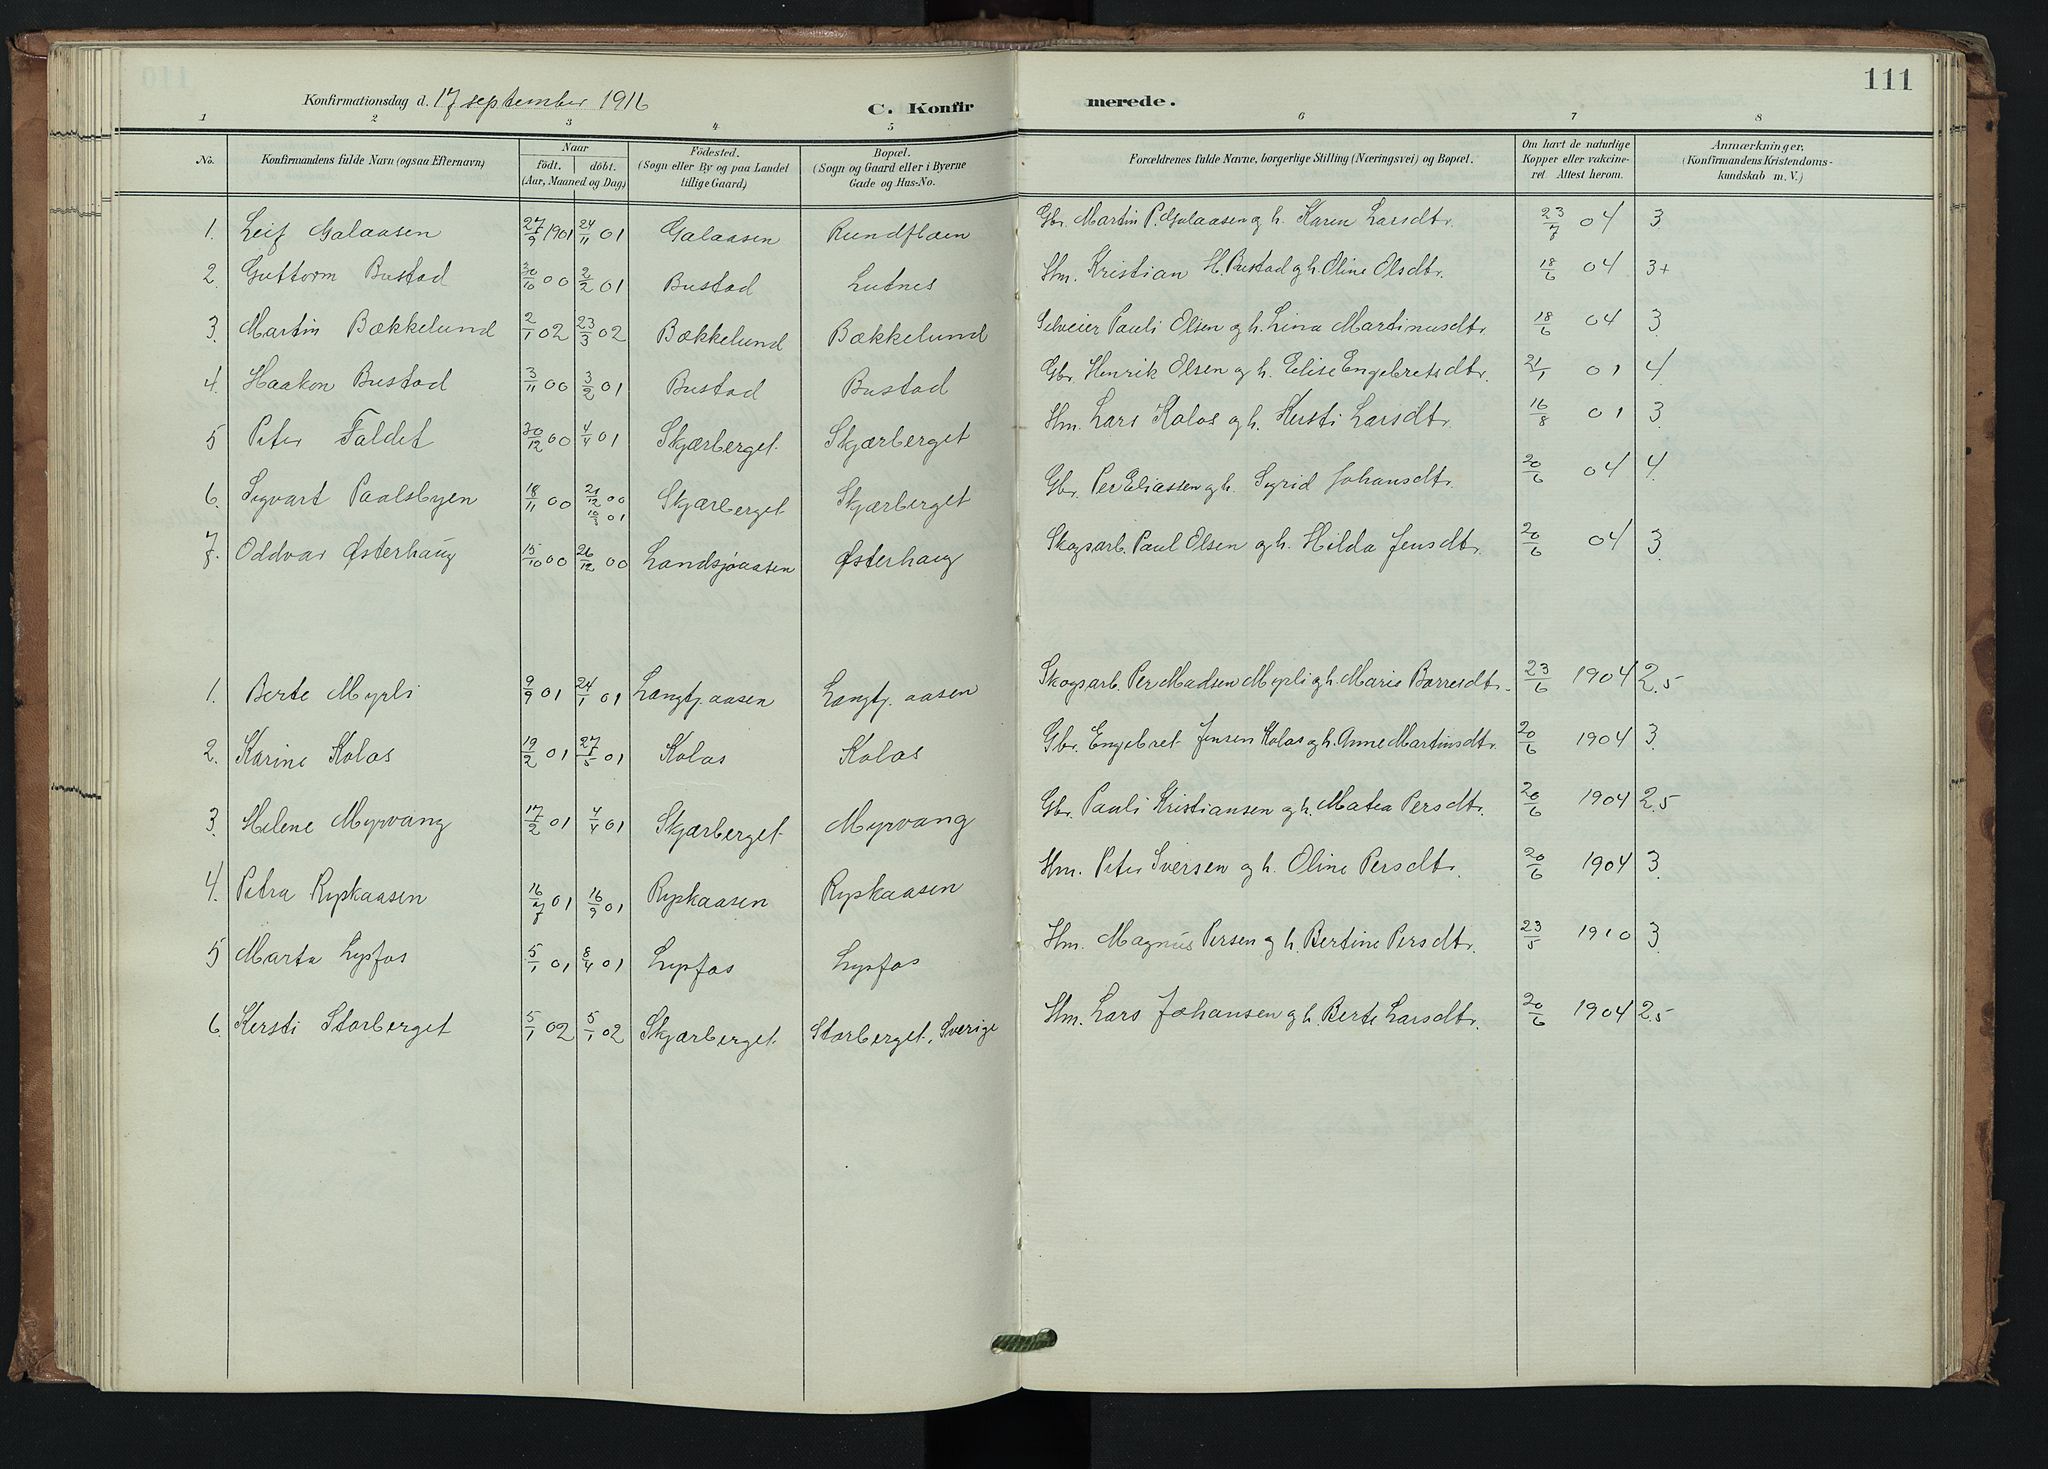 111
Konfirmationsdag d. 17 september 1916 C. Konfir merede.
1 2 3 4 5 6 7 8
No. Konfirmandens fulde Navn (ogsaa Efternavn) Naar födt. döbt. (Aar, Maaned og Dag) Födested. (Sogn eller By og paa Landet tillige Gaard) Bopæl. (Sogn og Gaard eller i Byerne Gade og Hus-No. Forældrenes fulde Navne, borgerlige Stilling (Næringsvei) og Bopæl. Om havt de naturlige Kopper eller vakcineret. Attest herom. Anmærkninger, (Konfirmandens Kristendomskundskab m. V.)
1. Leif Galaasen 27/9 1901 24/11 01 Galaasen Rundfloen Gbr. Martin P. Galaasen og h. Karen Larsdtr. 23/7 04 3
2. Guttorm Bustad 30/10 00 2/2 01 Bustad Lutnes Hm. Kristian H. Bustad og h. Oline Olsdtr. 18/6 04 3+
3. Martin Bækkelund 2/1 02 23/3 02 Bækkelund Bækkelund Selveier Pauli Olsen og h. Lina Martinusdtr. 18/6 04 3
4. Haakon Bustad 3/11 00 3/2 01 Bustad Bustad Gbr. Henrik Olsen og h. Elise Engebretsdtr. 21/1 01 4
5 Peter Faldet 30/12 00 4/4 01 Skjærberget Skjærberget Hm. Lars Kolos og h. Kersti Larsdtr. 16/8 01 3.
6. Sigvart Paalsbyen 18/11 00 21/12 00 18/3 01 Skjærberget Skjærberget Gbr. Per Eliassen og h. Sigrid Johansdtr. 20/6 04 4.
7. Oddvar Østerhaug 15/10 00 26/12 00 Landsjøaasen Østerhaug Skogsarb. Paul Olsen og h. Hilda Jensdtr. 20/6 04 3.
1. Berte Myrli 9/9 01 24/1 01 Langtj.aasen Langtj. aasen Skogsarb. Per Madsen Myrli og h. Maris Borresdtr. 23/6 1904 2.5
2. Karine Kolos 19/2 01 27/5 01 Kolos Kolos Gbr. Engebret Jensen Kolos og h. Anne Martinsdtr. 20/6 1904 3.
3. Helene Myrvang 17/2 01 4/4 01 Skjærberget Myrvang Gbr. Pauli Kristiansen og h. Matea Persdtr. 20/6 1904 2.5
4. Petra Rypkaasen 16/7 01 16/9 01 Rypkaasen Rypkaasen Hm. Peter Iversen og h. Oline Persdtr. 20/6 1904 3.
5 Marta Lysfos 5/1 01 8/4 01 Lysfos Lysfos Hm. Magnus Persen og h. Bertine Persdtr. 23/5 1910 3
6. Kersti Storberget 5/1 02 5/1 02 Skjærberget Storberget, Sverige Hm. Lars Johansen og h. Berte Larsdtr. 20/6 1904 2.5